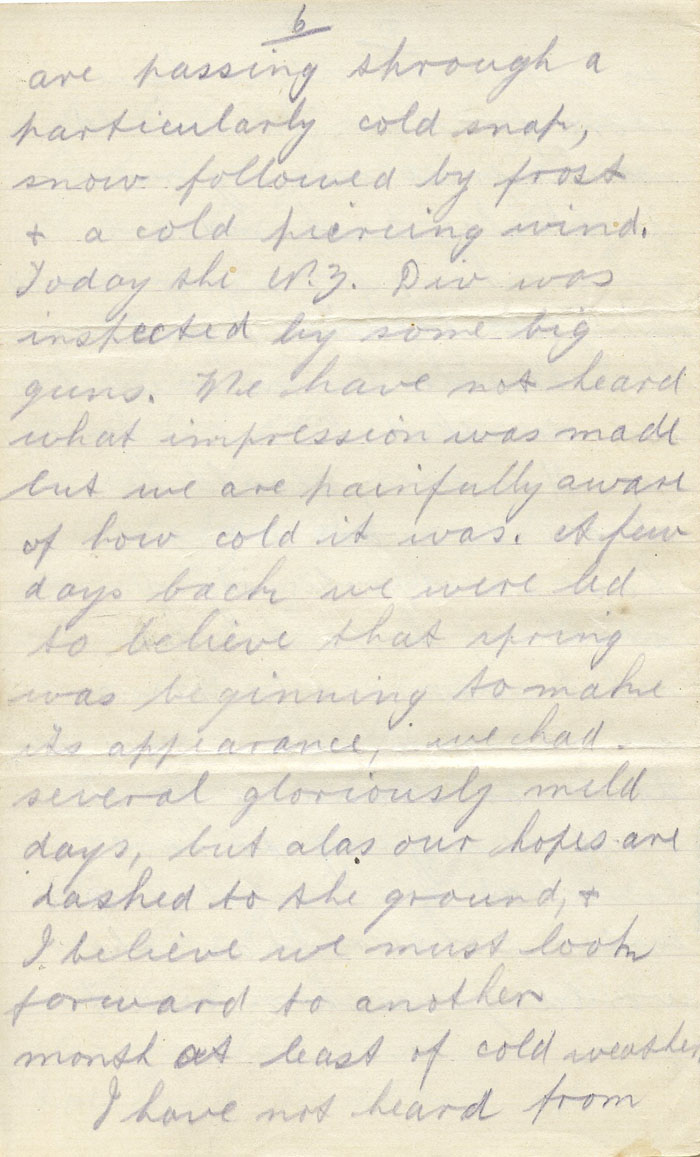 6
are passing through a
particularly cold snap,
snow followed by frost
+ a cold piercing wind.
Today the N.Z. Div was
inspected by some big
guns. We have not heard
what impression was made
but we are painfully aware
of how cold it was. A few
days back we were led
to believe that spring
was beginning to make
its appearance, we had
several gloriously mild
days, but alas our hopes are
dashed to the ground, +
I believe we must look
forward to another
month at least of cold weather
I have not heard from